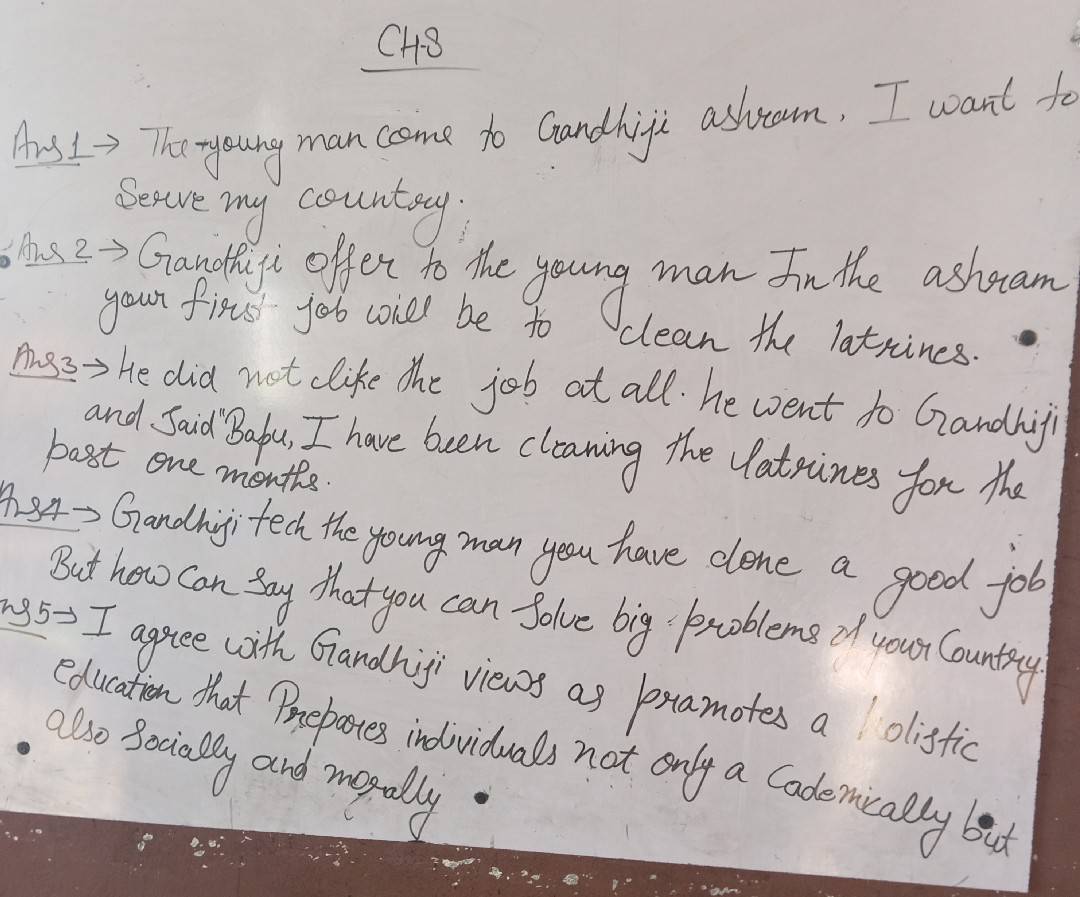 CH-8
Ans 1→ The young man come to Gandhiji ashram. I want to
Serve my country.
Ans 2→ Gandhiji offer to the young man In the ashram
your first job will be to clean the latrines.
Ans3→ He did not like the job at all. he went to Gandhiji
and Said "Bapu, I have been cleaning the latrines for the
past one months.
Ans4→ Gandhiji tech the young man you have done a good job
But how can Say that you can Solve big problems of your Country.
ns5→ I agree with Gandhiji views as pramotes a holistic
education that Prepares individuals not only a Cademically but
also Socially and morally.